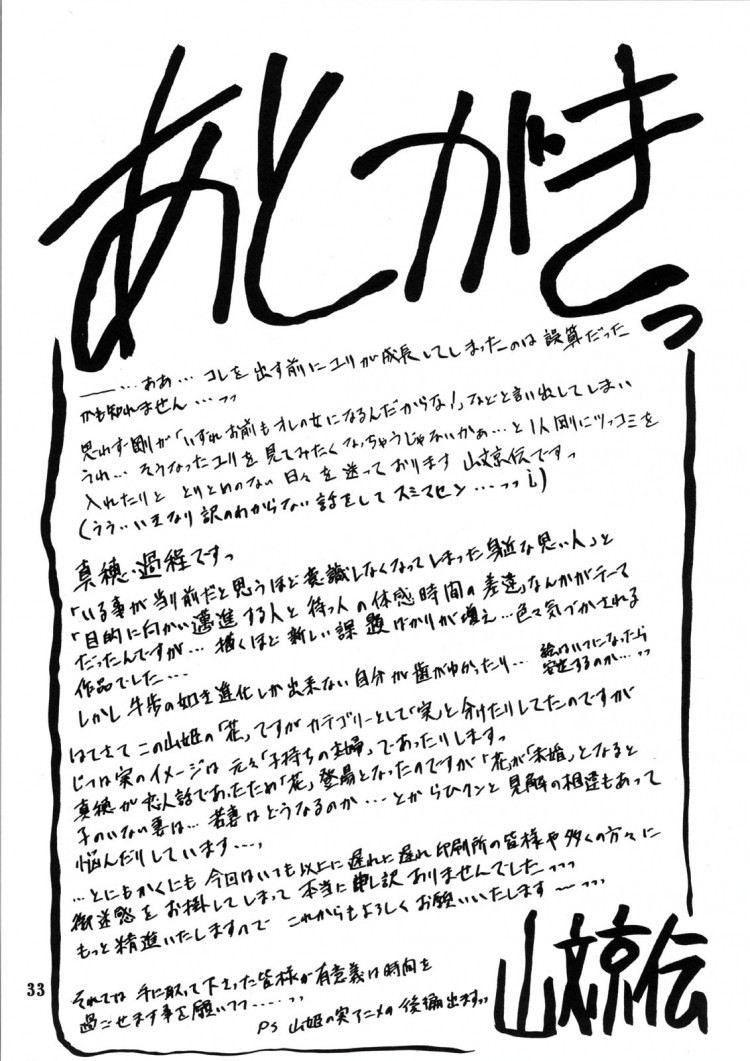 あとがきっ
――…ああ…コレを出す前にユリが成長してしまったのは誤算だった
かも知れません…っっ
思わず剛が「いずれお前もオレの女になるんだからな!」などと言い出してしまい
うれ…そうなったユリを見てみたくなっちゃうじゃないかぁ…と1人剛にツッコミを
入れたりと とりとめのない日々を送っております 山文京伝ですっ
(うう…いきなり訳のわからない話をしてスミマセン…っっ
真穂・過程ですっ
「いる事が当り前だと思うほど意識しなくなってしまった身近な思い人」と
「目的に向かい邁進する人と待つ人の体感時間の差違」なんかがテーマ
だったんですが…描くほど新しい課題ばかりが増え…色々気づかされる
作品でした…
しかし牛歩の如き進化しか出来ない自分が歯がゆかったり…
絵はいつになったら
安定するのか…っっ
はてさてこの山姫の「花」ですがカテゴリーとして「実」と分けたりしてたのですが
じつは実のイメージは元々「子持ちの主婦」であったりしますっ
真穂が恋人話であったため「花」登場となったのですが「花」が「未婚」となると
子のいない妻は…若妻はどうなるのか…とからひクンと見解の相違もあって
悩んだりしています…っ
…とにもかくにも今回はいつも以上に遅れに遅れ印刷所の皆様や多くの方々に
御迷惑をお掛してしまって本当に申し訳ありませんでしたっっっ
もっと精進いたしますので これからもよろしくお願いいたします〜っっっ
それでは 手に取って下さった皆様が有意義な時間を
過ごせます事を願いつつ……っっ
PS 山姫の実アニメの後編出ますっっ
山文京伝
33